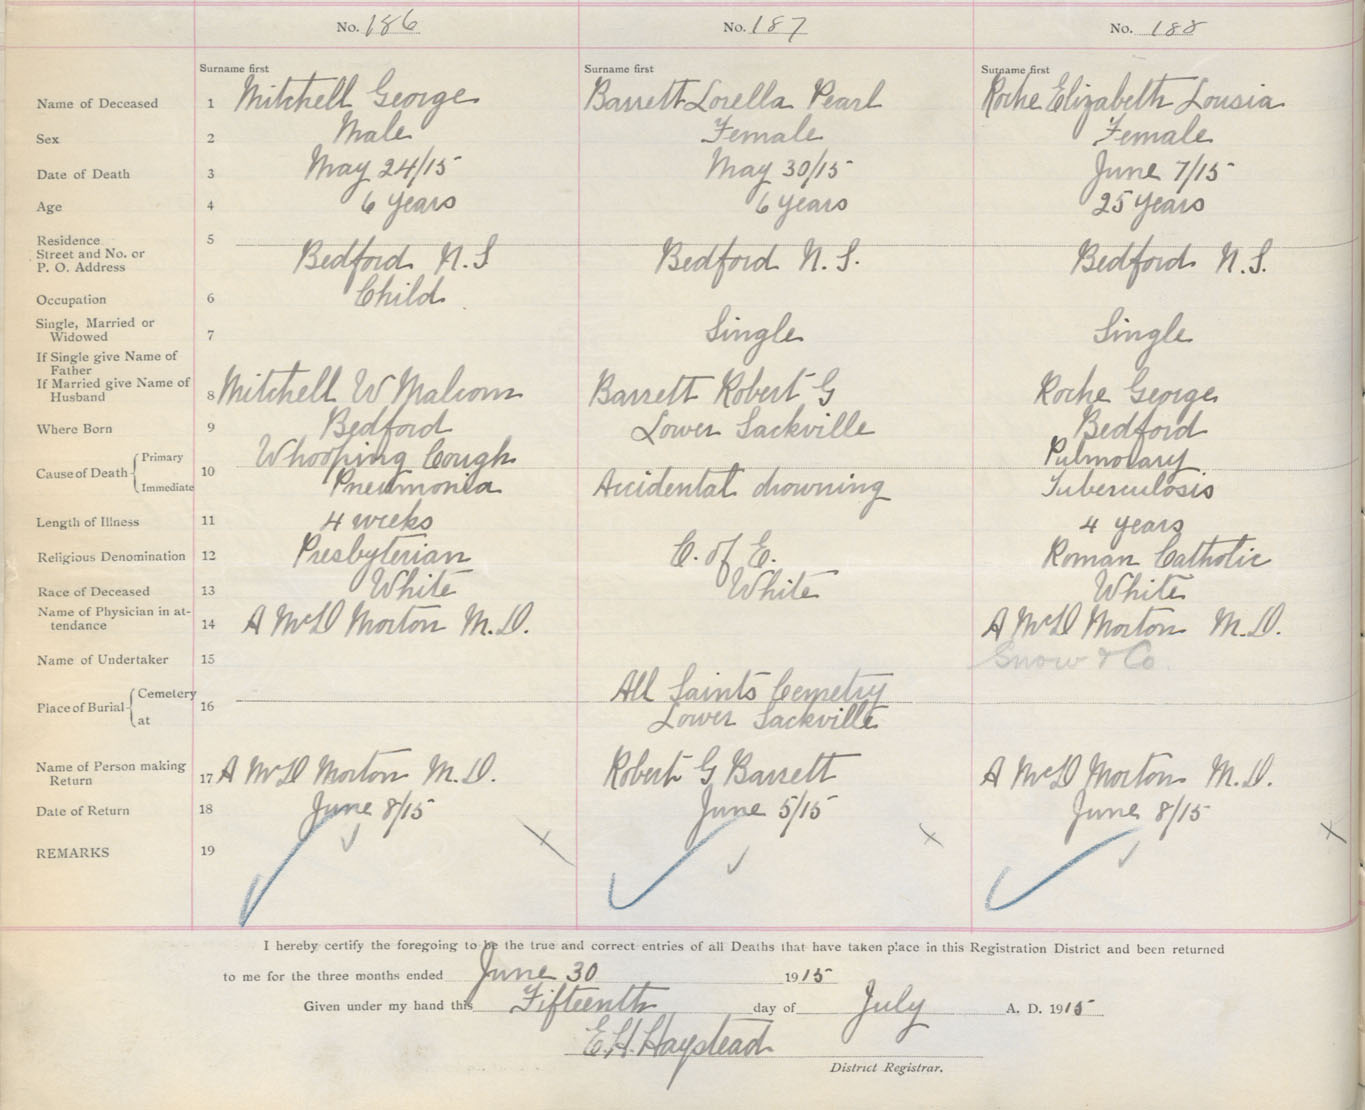 No. 186 No. 187 No. 188
Surname first Surname first Surname first
Name of Deceased 1 Mitchell George Barrett Lorella Pearl Roche Elizabeth Lousia
Sex 2 Male Female Female
Date of Death 3 May 24/15 May 30/15 June 7/15
Age 4 6 years 6 years 25 years
Residence 5
Street and No. or
P. O. Address Bedford N.S Bedford N.S. Bedford N.S.
Occupation 6 Child
Single, Married or
Widowed 7 Single Single
If Single give Name of
Father
If Married give Name of
Husband 8 Mitchell W Malcom Barrett Robert G Roche George
Where Born 9 Bedford Lower Sackville Bedford
Cause of Death { Primary 10 Whooping Cough Pulmorary
Immediate Pneumonia Accidental drowning Tuberculosis
Length of Illness 11 4 weeks 4 years
Religious Denomination 12 Presbyterian C. of E. Roman Catholic
Race of Deceased 13 White White White
Name of Physician in at-
tendance 14 A McD Morton M.D. A McD Morton M.D.
Name of Undertaker 15 Snow & Co.
Place of Burial { Cemetery 16 All Saints Cemetry
at Lower Sackville
Name of Person making
Return 17 A McD Morton M.D. Robert G Barrett A McD Morton M.D.
Date of Return 18 June 8/15 June 5/15 June 8/15
REMARKS 19
I hereby certify the foregoing to be the true and correct entries of all Deaths that have taken place in this Registration District and been returned
to me for the three months ended June 30 1915
Given under my hand this Fifteenth day of July A. D. 1915
E.H. Haystead
District Registrar.